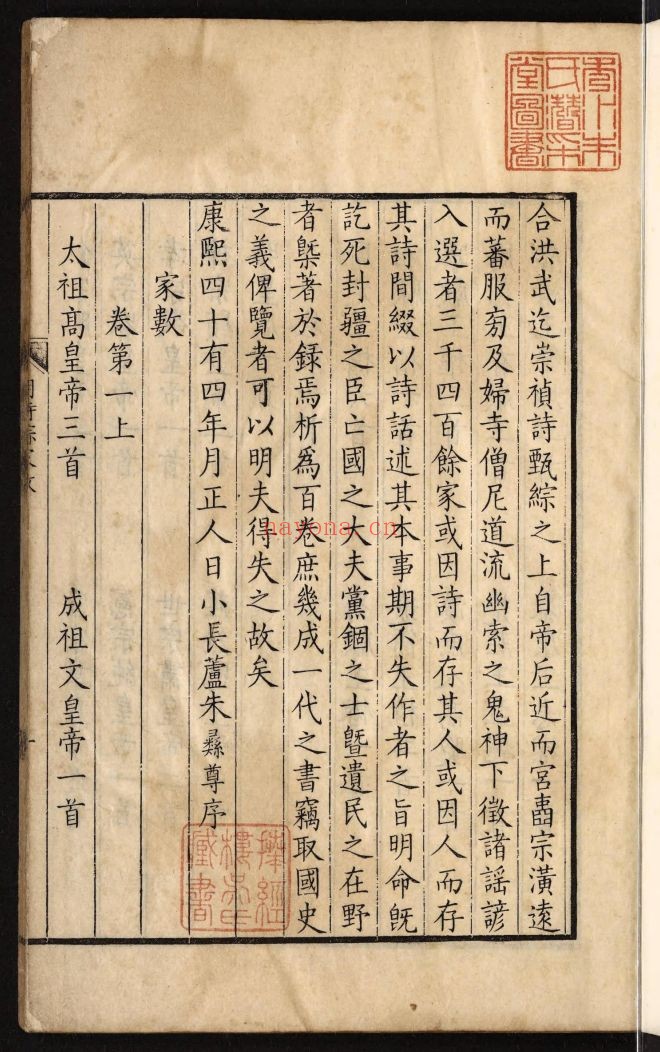 合洪武迄崇禎詩甄綜之上自帝后近而宮壼宗潢遠
而蕃服旁及婦寺僧尼道流幽索之鬼神下徵諸謡諺
入選者三千四百餘家或因詩而存其人或因人而存
其詩間綴以詩話述其本事期不失作者之旨明命旣
訖死封疆之臣亡國之大夫黨錮之士曁遺民之在野
者槩著於錄焉析爲百卷庶幾成一代之書竊取國史
之義俾覽者可以明夫得失之故矣
康熙四十有四年月正人日小長蘆朱彝尊序
家數
卷第一上
太祖髙皇帝三首 成祖文皇帝一首
明詩綜家數
一
秀水朱
氏潛采
堂圖書
揅經
樓
藏書
nayona.cn